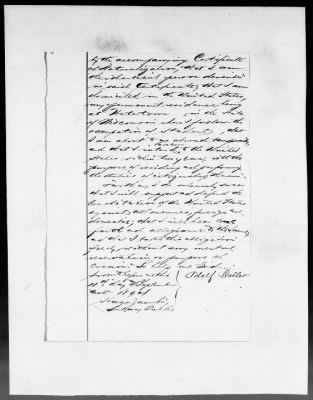 by the accompanying Certificate
of Naturalization; that I am
the identical person described
in said Certificate; that I am
domiciled in the United States,
my permanent residence being
at Watertown in the State
of Wisconsin where I follow the
occupation of student, that
I am about to go abroad temporarily
and that I intend to return to the United
States within two years with the
purpose of residing and performing
the duties of citizenship therein.
Further, I do solemnly swear
that I will support and defend the
Constitution of the United States
against all enemies, foreign and
domestic; that I will bear true
faith and allegiance to the same;
and that I take this obligation
freely, without any mental
reservation or purpose of
evasion: So help me God.
Sworn to before me this
day of September
Notary Public